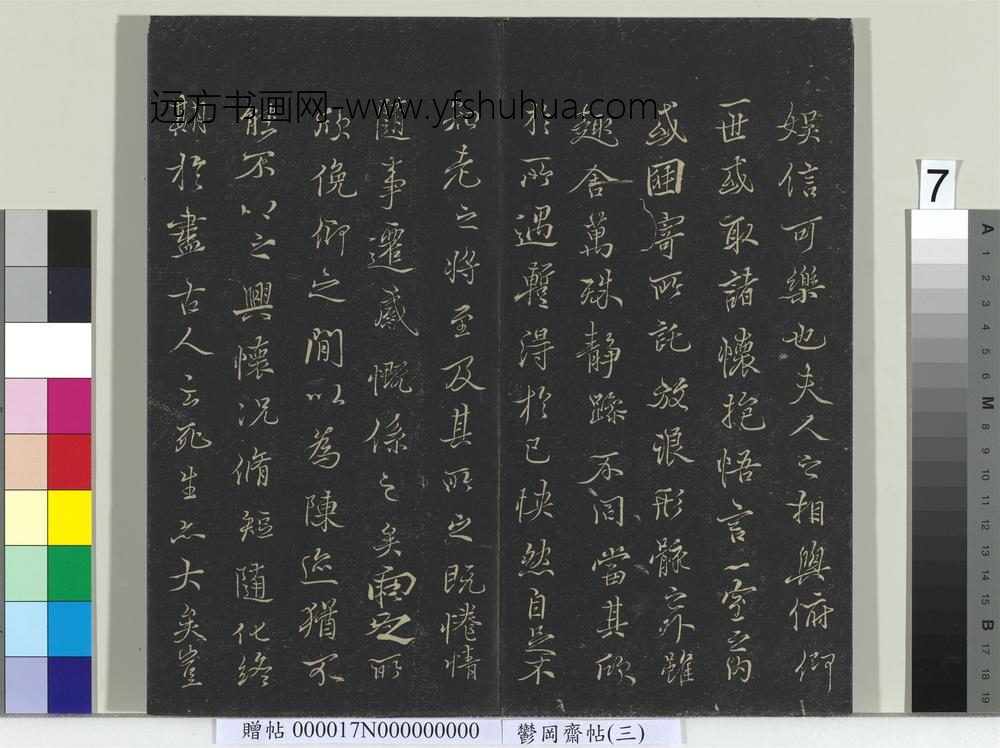 娛信可樂也夫人之相與俯仰
一世或取諸懷抱悟言一室之內
或因寄所託放浪形骸之外雖
趣舍萬殊靜躁不同當其欣
於所遇暫得於己怏然自足不
知老之將至及其所之既惓情
隨事遷感慨係之矣向之所
欣俛仰之閒以為陳迹猶不
能不以之興懷況脩短隨化終
期於盡古人云死生亦大矣豈
远方书画网-www.yfshuhua.com
7
A
1
2
3
4
5
6
M
8
9
10
11
12
13
14
15
B
17
18
19
贈帖 000017N000000000
鬱岡齋帖(三)